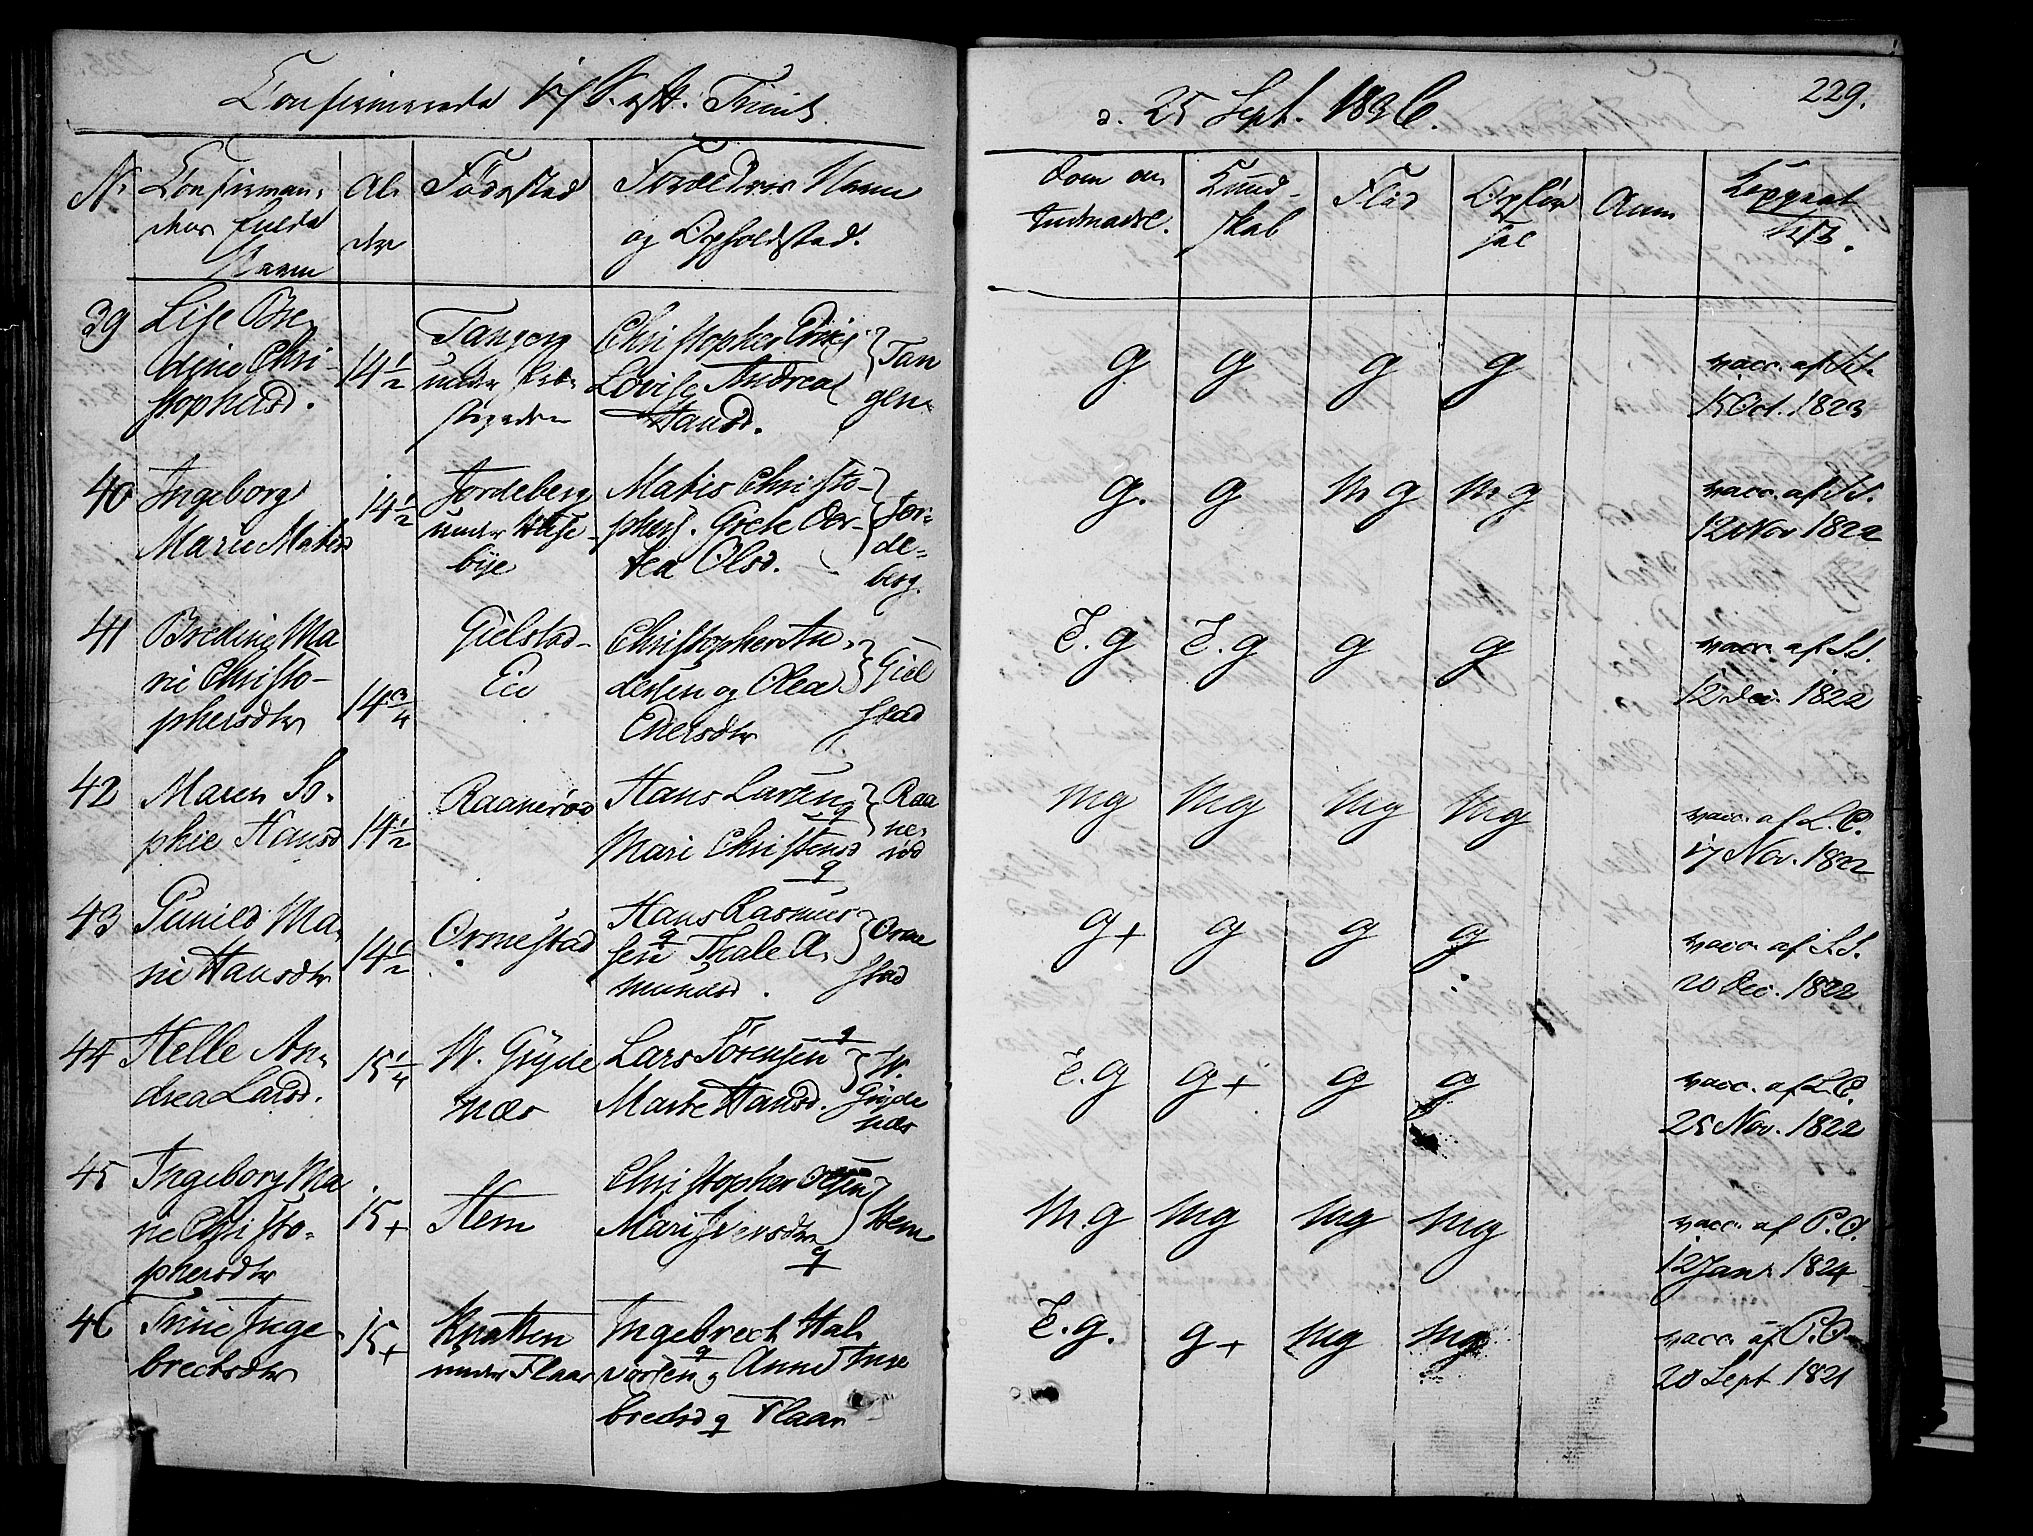 Confirmerede 17 S. eft. Trinit.
d. 25 Sept. 1836.
229.
No Confirman-
dens fulde
Navn
Al-
der
Fødested
Forældres Navn
og Opholdsted.
Dom om
Indmadsl.
Kund-
skab
Flid
Opfør
sel
Anm
39 Lise
dine Chri-
stophersd.
14 1/2
Tangen
under
Christopher
Lovise Andrea
Hansd.
Tan
gen
g g g g
vacc. af
15 Oct. 1823
40 Ingeborg
Marie Matisd
14 1/2
Jordeberg
under Huse-
bÿe
Matis Christo-
phers. Grete Dor-
tea Olsd.
Jor-
de-
berg.
g. g m g m g
vacc. af
12 Nov 1822
41 Breding Ma
rie Christo-
phersdtr
14 3/4
Gielstad-
Eie
Christopher An
dersen og Olea
Gie
stad
T. g T. g g g
vacc. af S.S.
12 Dec. 1822
42 Maren So-
phie Hansd
14 1/2
Raanerød
Hans Larsen
Mari Christensd
Raa
ne-
rød
mg mg mg mg
vacc. af L.C.
17 Nov. 1822
43 Gunild Ma-
rie Hansdtr
14 1/2
Ormestad
Hans Rasmus-
sen Thale A-
mundsd.
Orme
stad
g+ g g g
vacc. af S.S.
20 Dec. 1822
44 Helle An-
drea Larsd.
15 1/4
W. Grÿde
næs
Lars Sörensen
Marte Hansd.
W.
Grÿde
næs
T. g g+ g g
vacc. af L.C.
25 Nov. 1822
45 Ingeborg Ma
rie Christo-
phersdtr
15+
Hem
Christopher Olsen
Mari Iversdtr
Hem
m.g mg mg mg
vacc. af P.O.
12 Janr 1824
46 Trine Inge
brechtsdtr
15+
Knatten
under Flaar
Ingebrecht Hal
vorsen Anne Inge
brectsd Flaar
T. g. g+ mg mg
vacc. af P.O.
20 Sept 1821